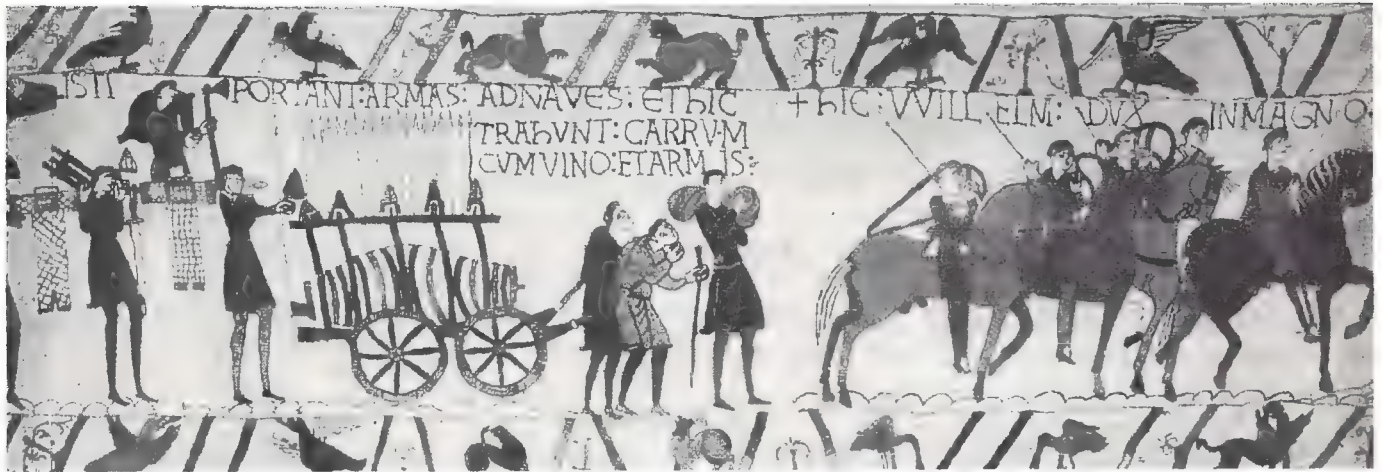 ISTI PORTANT:ARMAS: ADNAVES: EThIC
TRAhVNT: CARRVM
CVMVINO: ETARMIS:
+hIC: VVILLELM: DVX INMAGNO: